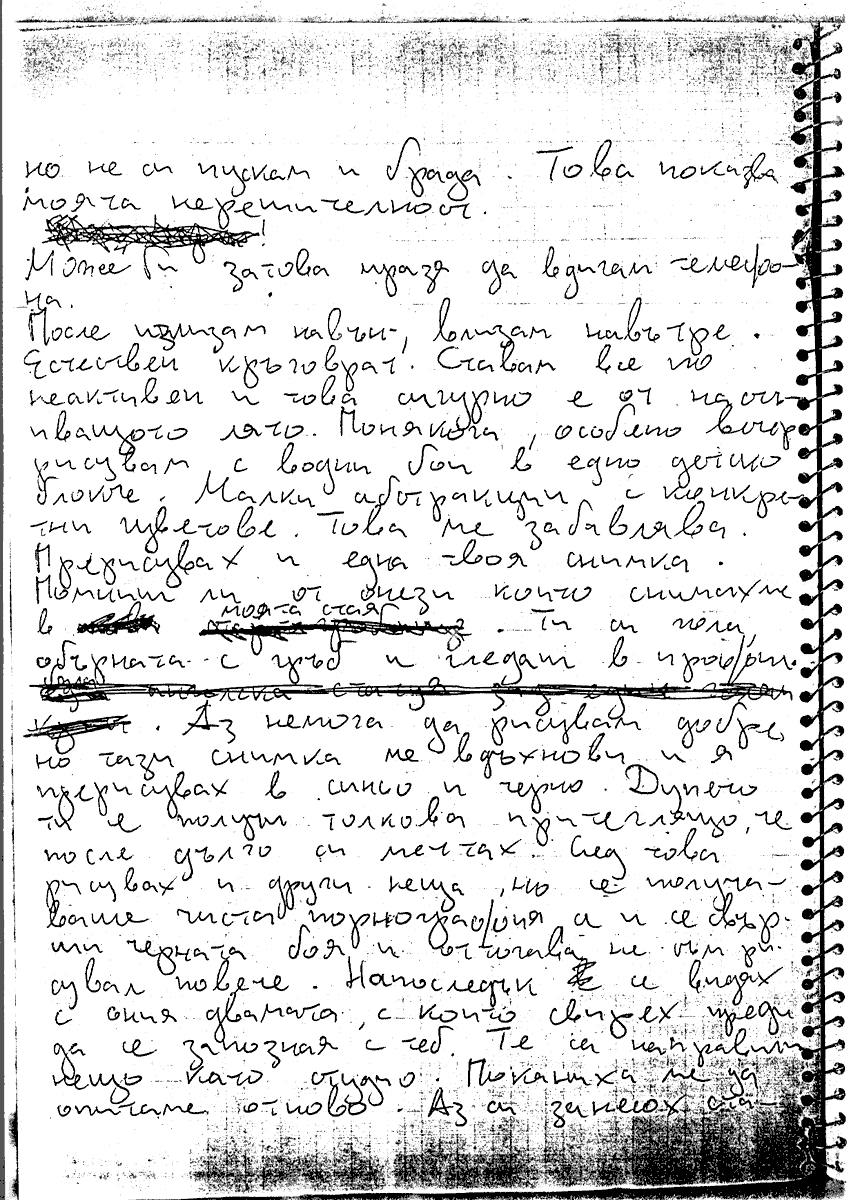 но не си пускам и брада. Това показва
моята нерешителност.
!
Може би затова мразя да вдигам телефо-
на.
После излизам навън, влизам навътре.
Естествен кръговрат. Ставам все по
неактивен и това сигурно е от настъ-
пващото лято. Понякога, особено вечер
рисувам с водни бои в едно детско
блокче. Малки абстракции с конкре-
тни цветове. Това ме забавлява.
Прерисувах и една твоя снимка.
Помниш ли от онези които снимахме
моята стая
в . Ти си гола,
обърната с гръб и гледаш в профил.
бяла английска статуя зад един
. Аз немога да рисувам добре,
но тази снимка ме вдъхнови и я
прерисувах в синьо и черно. Дупето
ти е получи толкова притеглящо, че
после дълго си мечтах. След това
рисувах и други неща, но се получа-
ваше чиста порнография а и се свър-
ши черната боя и оттогава не съм ри-
сувал повече. Напоследък се видях
с ония двамата, с които свирех преди
да се запозная с теб. Те са направили
нещо като студио. Поканиха ме да
опитаме отново. Аз си занесох ста-